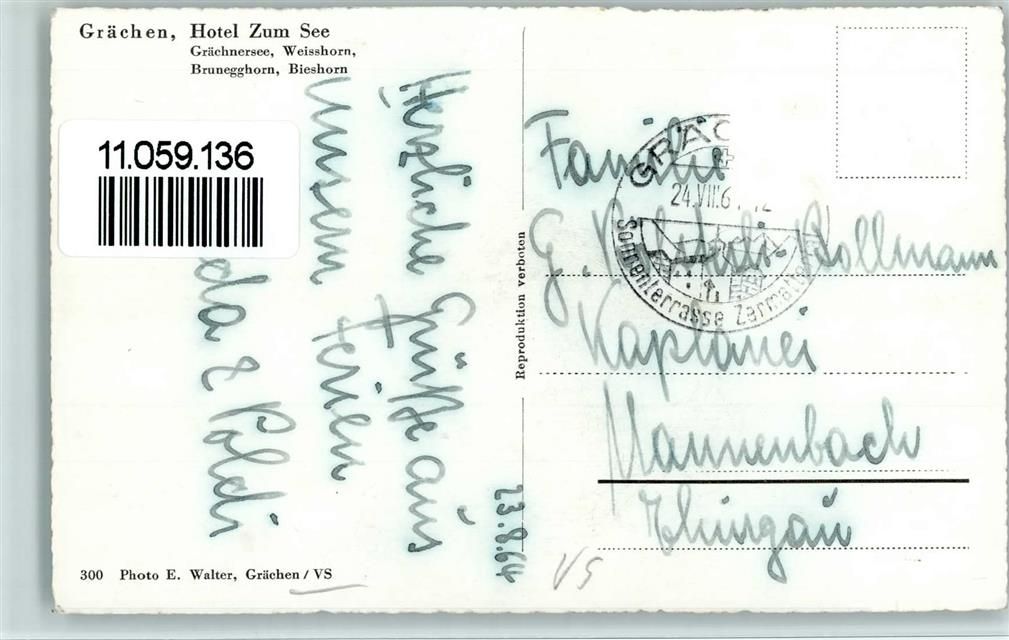 Grächen, Hotel Zum See
Grächnersee, Weisshorn,
Brunegghorn, Bieshorn
11.059.136
Herzliche Grüße aus
unseren Ferien
& Poldi
23.8.64
Reproduktion verboten
GRÄC
24.VII.6
Sonnenterrasse Zermatt
Familie
G. Bollmann
Kaplanei
Mannenbach
Thurgau
VS
300 Photo E. Walter, Grächen / VS